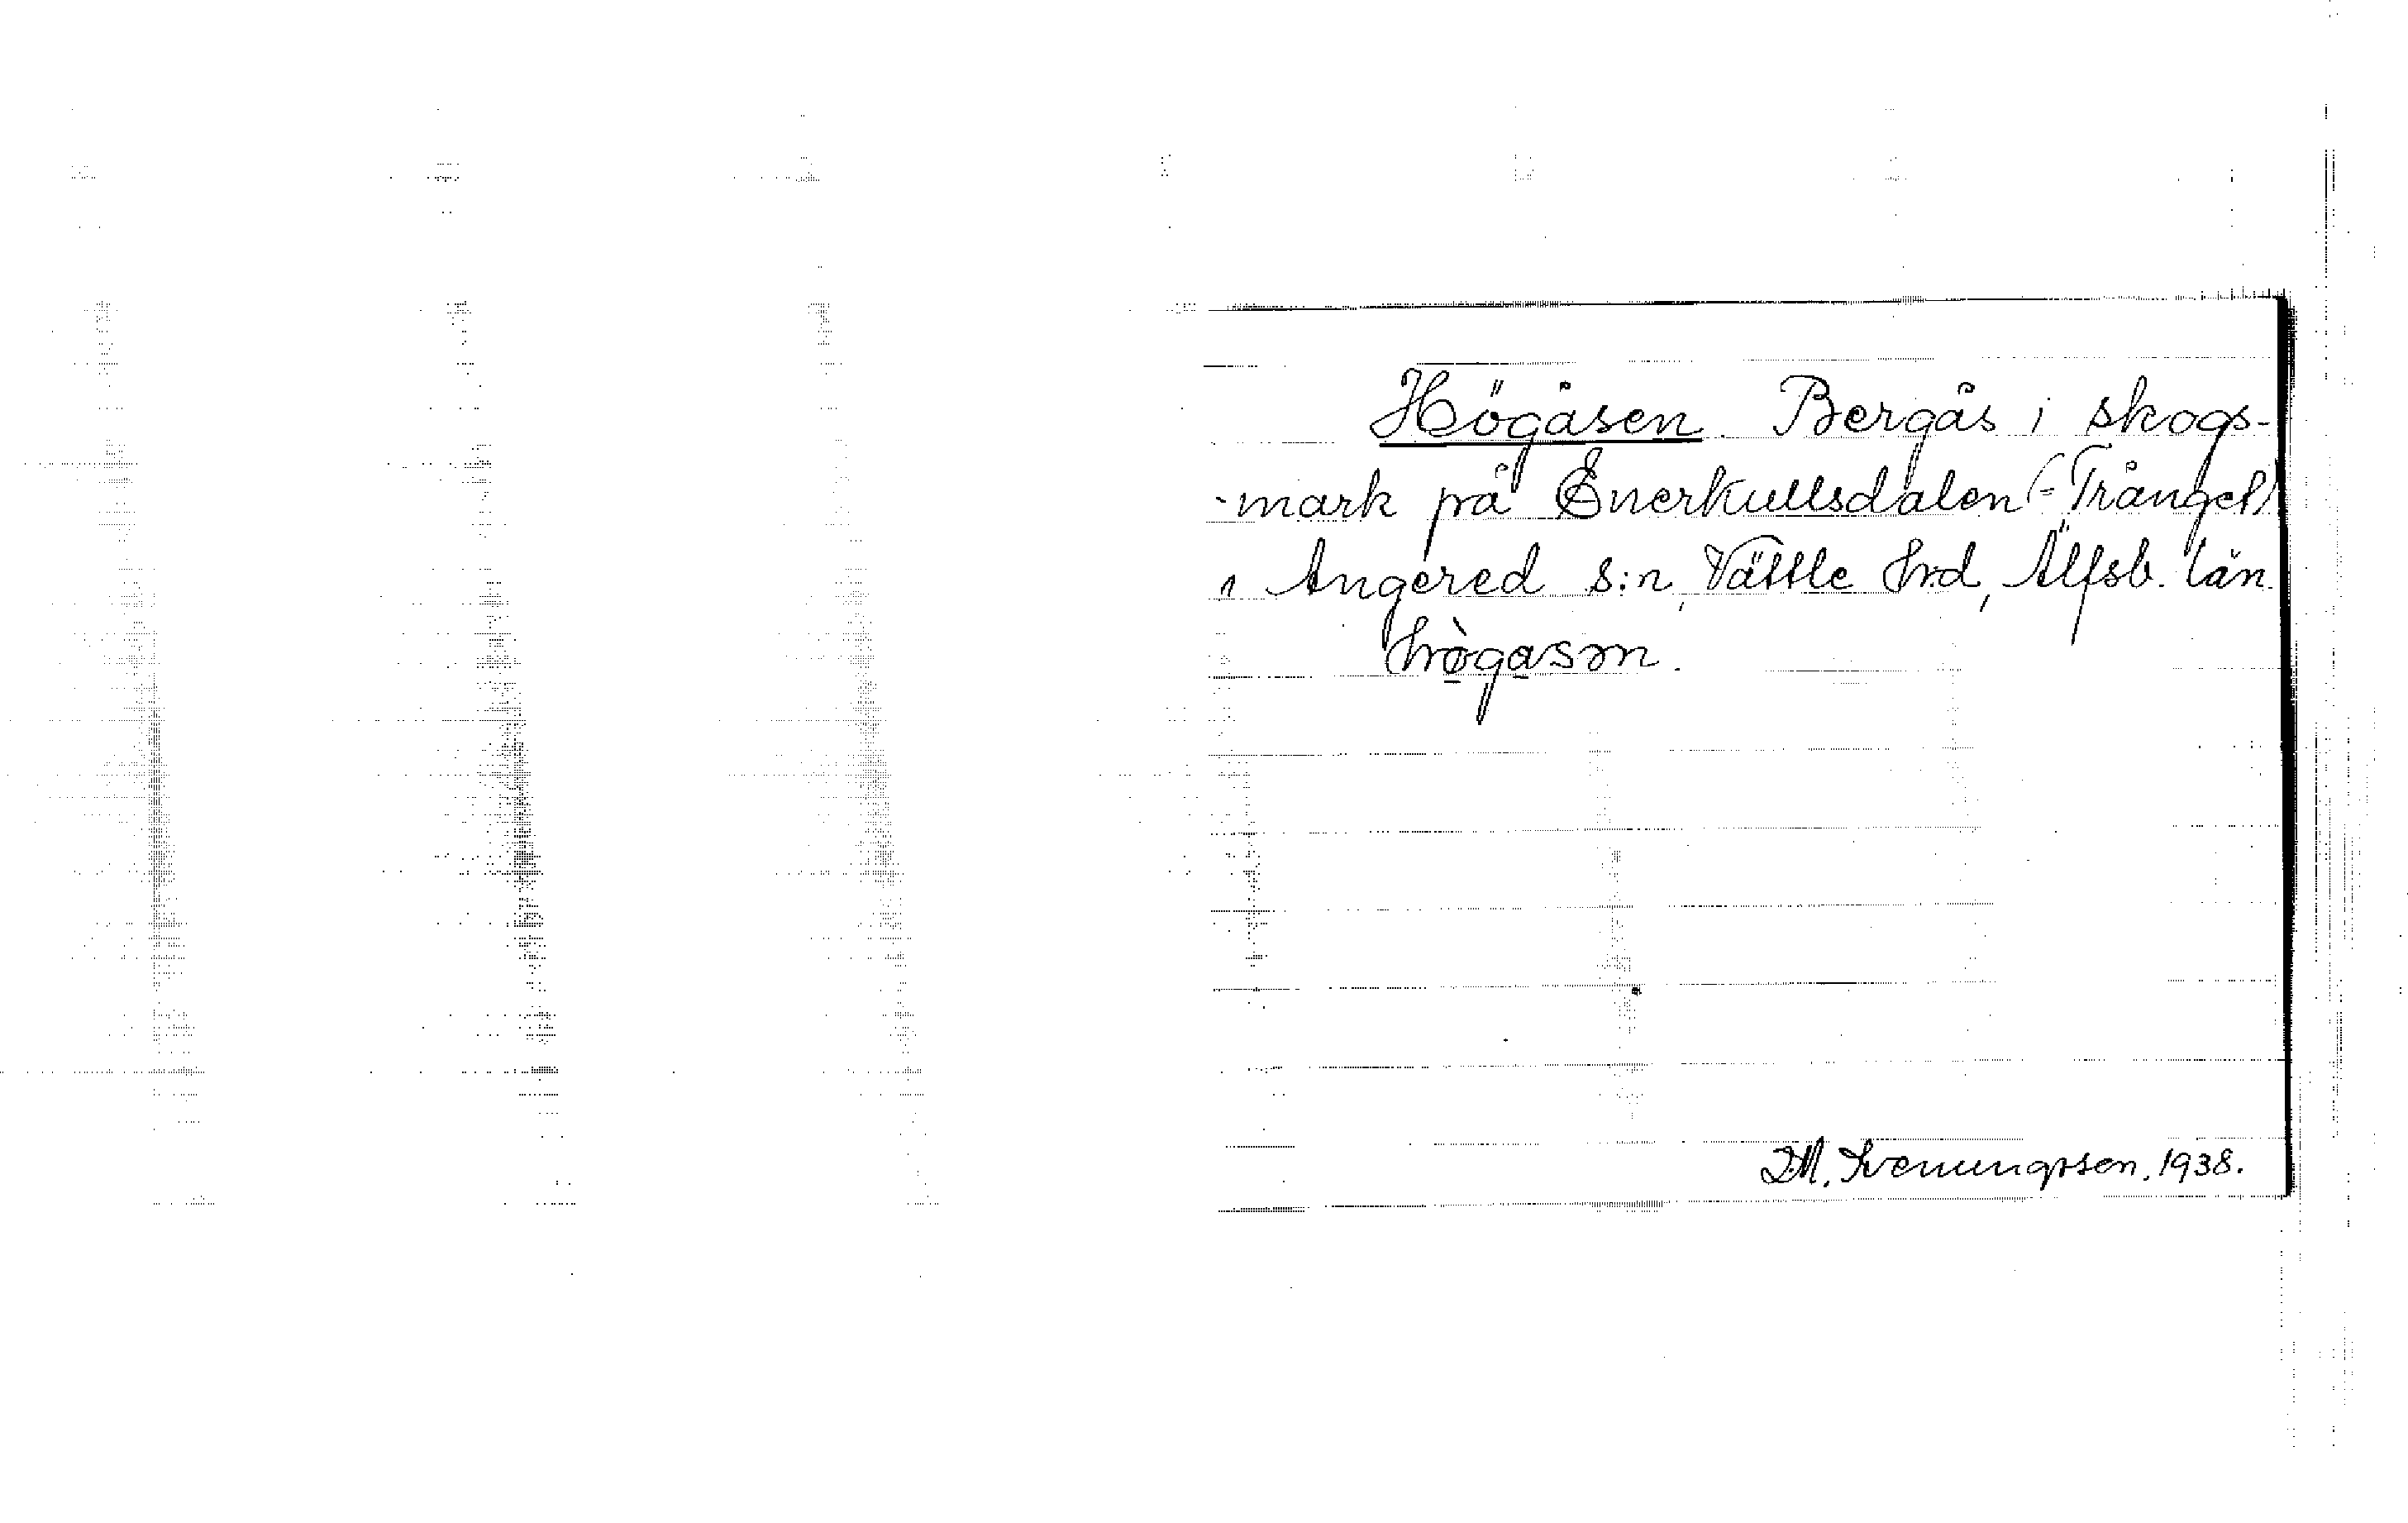 Högåsen. Bergås i skogs-
-mark på Enerkullsdalen (= Trängel)
i Angered s:n, Vättle hrd, Älfsb. län.
hògasm.
D.M. Svenungsson. 1938.